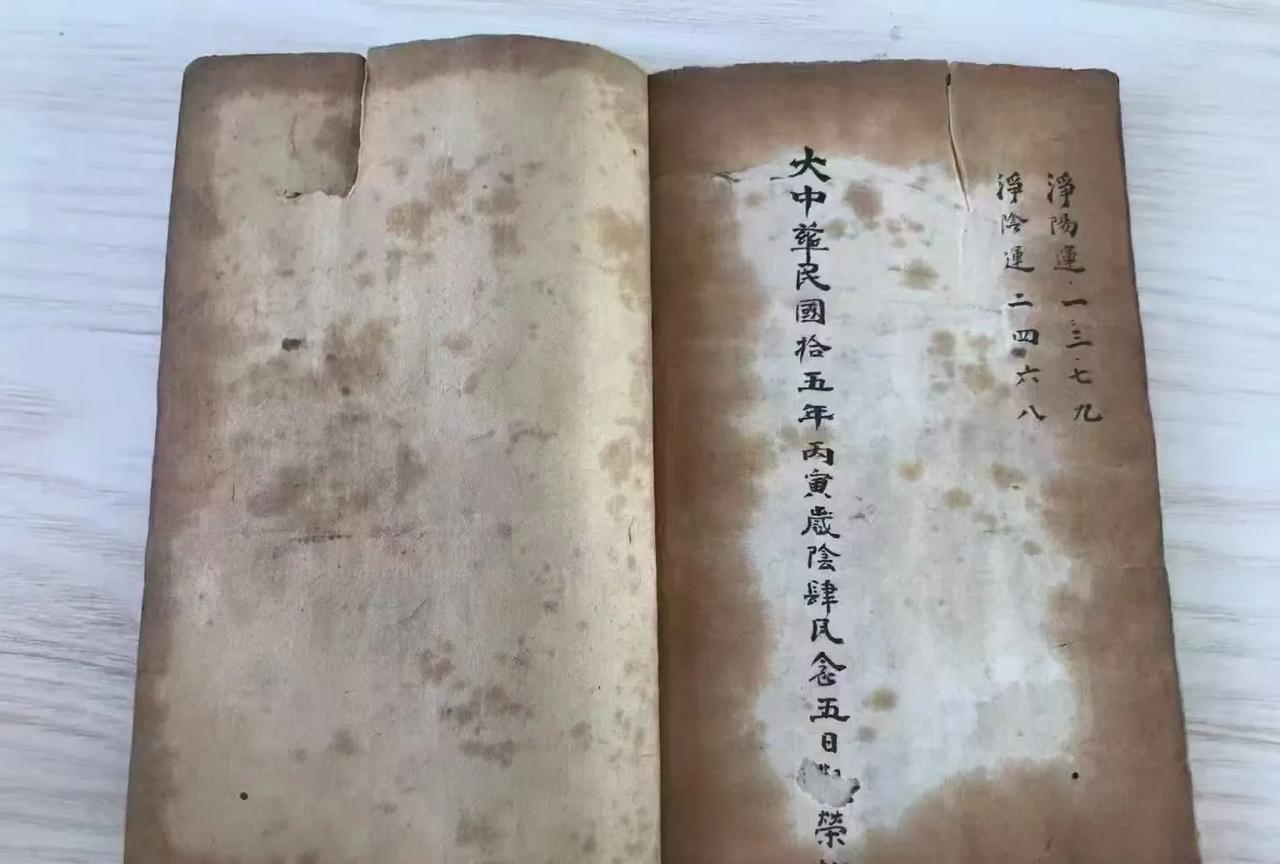 淨陽運一三七九
淨陰運二四六八
大中華民國拾五年丙寅歲陰肆月念五日
榮